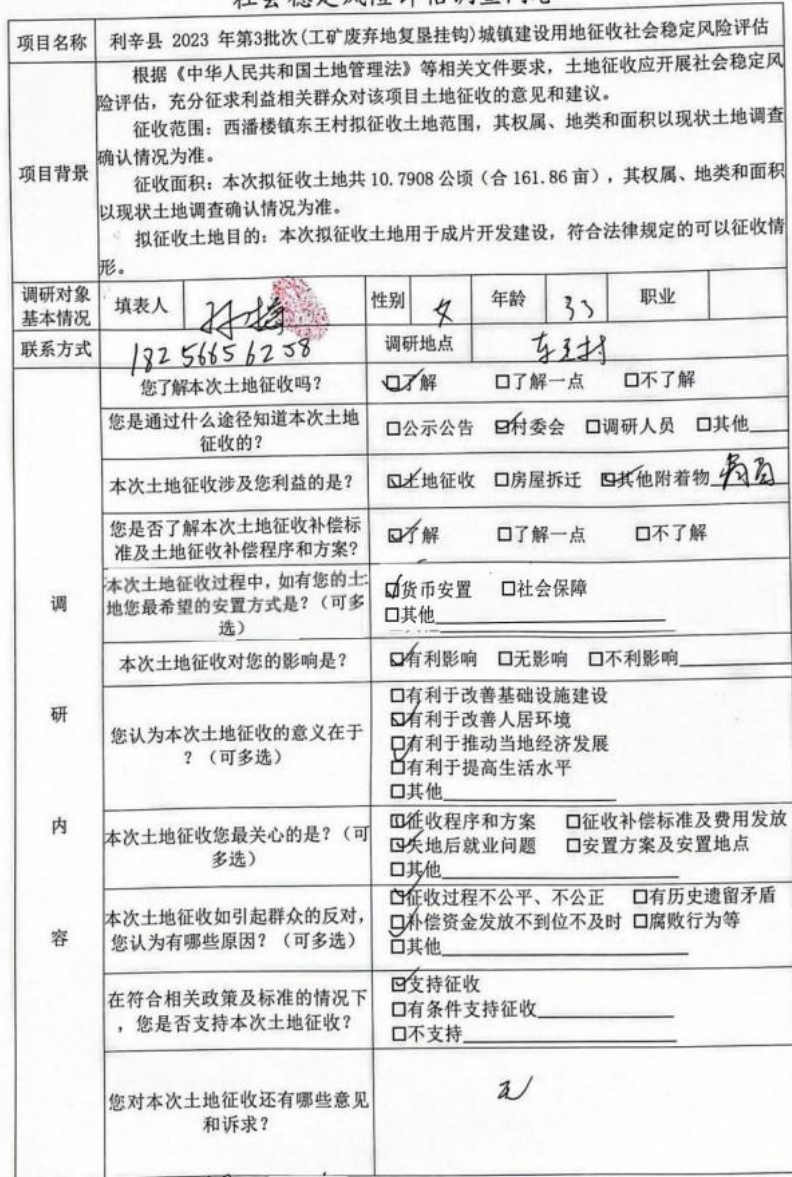 社会稳定风险评估调查问卷
项目名称 利辛县 2023 年第3批次(工矿废弃地复垦挂钩)城镇建设用地征收社会稳定风险评估
项目背景
根据《中华人民共和国土地管理法》等相关文件要求，土地征收应开展社会稳定风
险评估，充分征求利益相关群众对该项目土地征收的意见和建议。
征收范围：西潘楼镇东王村拟征收土地范围，其权属、地类和面积以现状土地调查
确认情况为准。
征收面积：本次拟征收土地共 10.7908 公顷（合 161.86 亩），其权属、地类和面积
以现状土地调查确认情况为准。
拟征收土地目的：本次拟征收土地用于成片开发建设，符合法律规定的可以征收情
形。
调研对象
基本情况
填表人 孙梅 性别 女 年龄 33 职业
联系方式 18256656258 调研地点 东王村
调
研
内
容
您了解本次土地征收吗？
☑了解 □了解一点 □不了解
您是通过什么途径知道本次土地
征收的？
□公示公告 ☑村委会 □调研人员 □其他
本次土地征收涉及您利益的是？
☑土地征收 □房屋拆迁 ☑其他附着物 青苗
您是否了解本次土地征收补偿标
准及土地征收补偿程序和方案？
☑了解 □了解一点 □不了解
本次土地征收过程中，如有您的土
地您最希望的安置方式是？（可多
选）
☑货币安置 □社会保障
□其他
本次土地征收对您的影响是？
☑有利影响 □无影响 □不利影响
您认为本次土地征收的意义在于
？（可多选）
□有利于改善基础设施建设
☑有利于改善人居环境
☑有利于推动当地经济发展
□有利于提高生活水平
□其他
本次土地征收您最关心的是？（可
多选）
☑征收程序和方案 □征收补偿标准及费用发放
☑失地后就业问题 □安置方案及安置地点
□其他
本次土地征收如引起群众的反对，
您认为有哪些原因？（可多选）
☑征收过程不公平、不公正 □有历史遗留矛盾
☑补偿资金发放不到位不及时 □腐败行为等
□其他
在符合相关政策及标准的情况下
，您是否支持本次土地征收？
☑支持征收
□有条件支持征收
□不支持
您对本次土地征收还有哪些意见
和诉求？
无